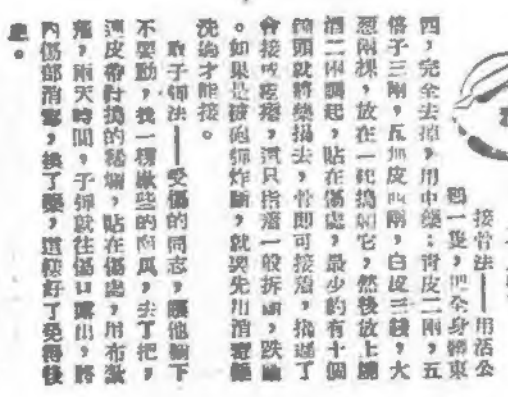 接骨法——用活公
鷄一隻，把全身髒東
四，完全去掉，用中藥：青皮二兩，五
倍子三兩，五加皮四兩，白皮三錢，大
葱兩棵，放在一起搗如它，然後放上燒
酒二兩調起，貼在傷處，最少約有十個
鐘頭就將藥揭去，骨即可接着，揭遲了
會接成疙瘩，這只指着一般拆斷，跌斷
。如果是被砲彈炸斷，就要先用消毒
洗過才能接。
取子彈法——受傷的同志，讓他躺下
不要動，找一棵嫩些的南瓜，去了把，
連皮帶籽搗的稀爛，貼在傷處，用布紮
着，兩天時間，子彈就往傷口露出，將
內傷部消毒，換了藥，這樣好了免得後
患。